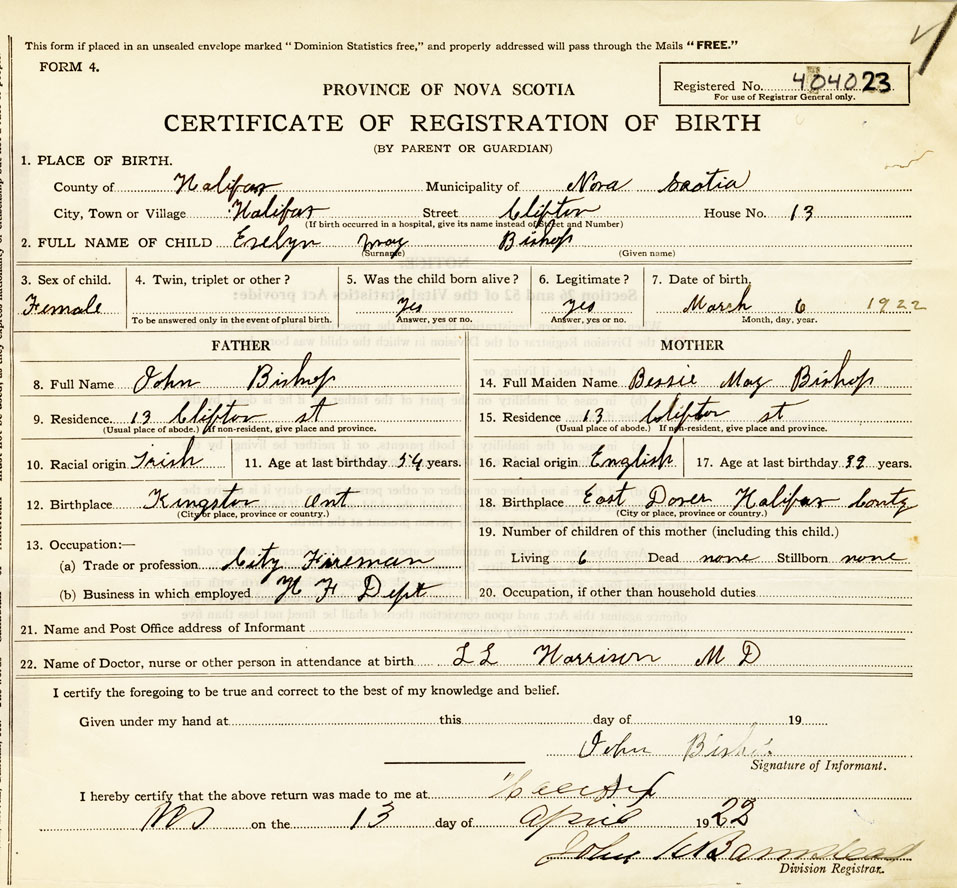 This form if placed in an unsealed envelope marked "Dominion Statistics free," and properly addressed will pass through the Mails "FREE."
FORM 4.
Registered No. 404023
For use of Registrar General only.
PROVINCE OF NOVA SCOTIA
CERTIFICATE OF REGISTRATION OF BIRTH
(BY PARENT OR GUARDIAN)
1. PLACE OF BIRTH.
County of Halifax Municipality of Nova Scotia
City, Town or Village Halifax Street Clifton House No. 13
(If birth occurred in a hospital, give its name instead of Street and Number)
2. FULL NAME OF CHILD Evelyn May Bishop
(Surname) (Given name)
3. Sex of child. 4. Twin, triplet or other? 5. Was the child born alive? 6. Legitimate? 7. Date of birth
Female Yes Yes March 6 1922
To be answered only in the event of plural birth. Answer, yes or no. Answer, yes or no. Month, day, year.
FATHER MOTHER
8. Full Name John Bishop 14. Full Maiden Name Bessie May Bishop
9. Residence 13 Clifton st 15. Residence 13 Clifton st
(Usual place of abode.) If non-resident, give place and province. (Usual place of abode.) If non-resident, give place and province.
10. Racial origin Irish 11. Age at last birthday 54 years. 16. Racial origin English 17. Age at last birthday 39 years.
12. Birthplace Kingston Ont 18. Birthplace East Dover Halifax County
(City or place, province or country.) (City or place, province or country.)
13. Occupation:— 19. Number of children of this mother (including this child.)
(a) Trade or profession City Fireman Living 6 Dead none Stillborn none
(b) Business in which employed H F Dept 20. Occupation, if other than household duties
21. Name and Post Office address of Informant
22. Name of Doctor, nurse or other person in attendance at birth L L Harrison M D
I certify the foregoing to be true and correct to the best of my knowledge and belief.
Given under my hand at this day of 19
John Bishop
Signature of Informant.
I hereby certify that the above return was made to me at Halifax
NS on the 13 day of April 1922
John H Barnstead
Division Registrar.